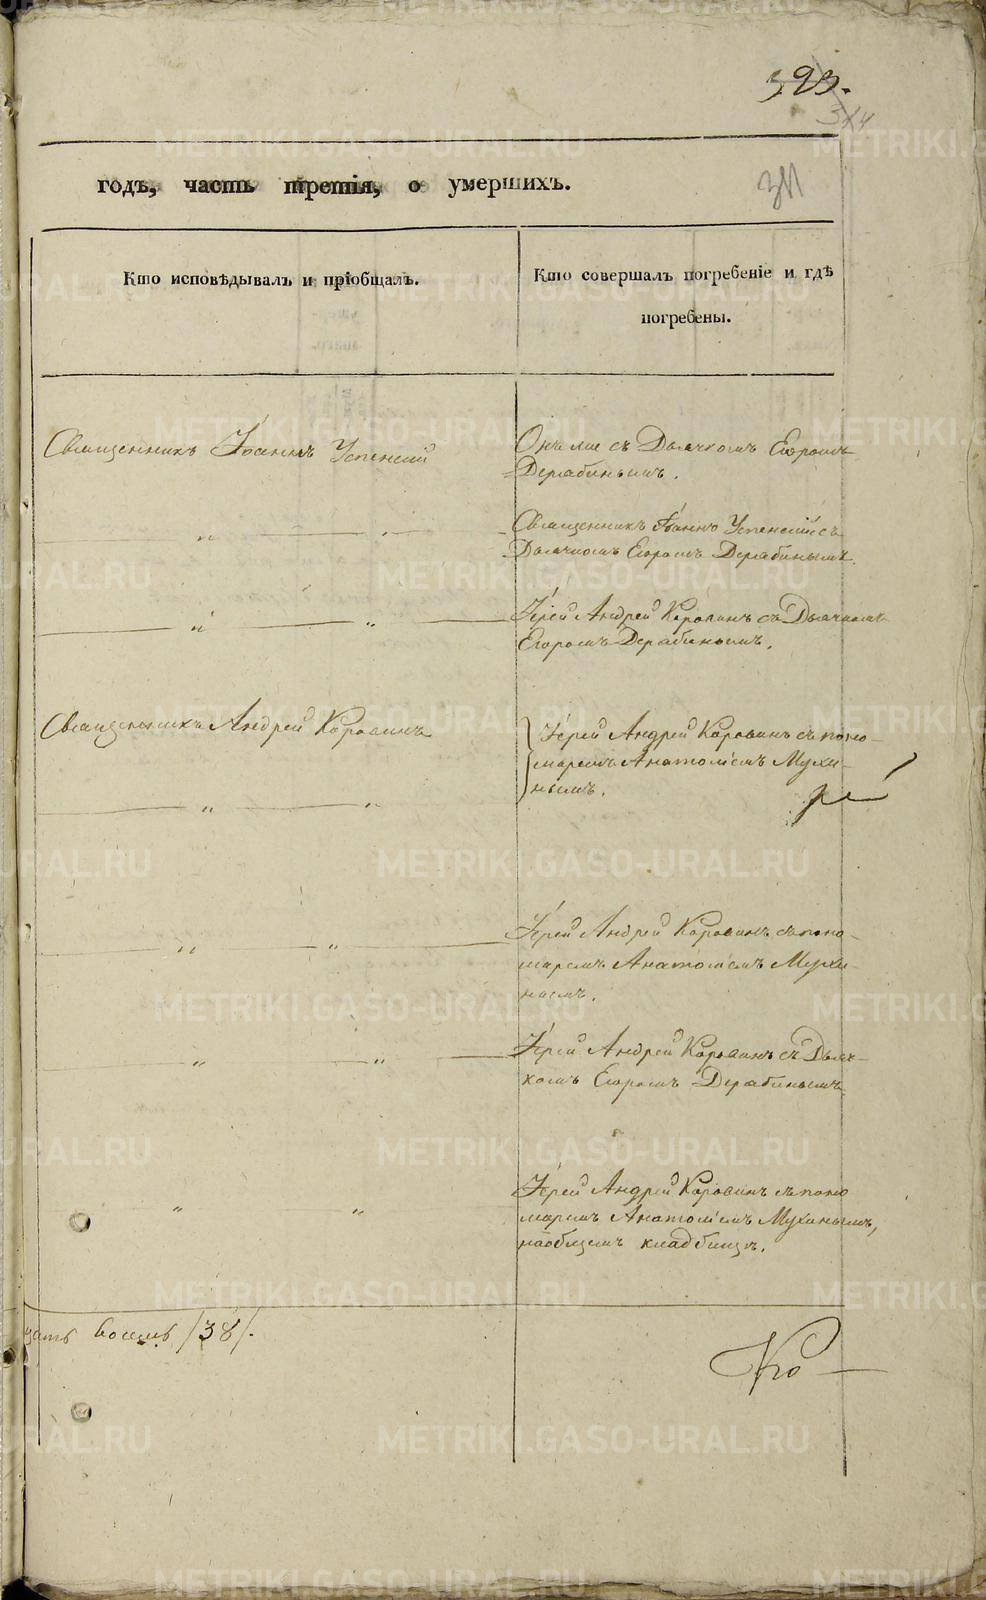 323.
314
годъ, часть третія, о умершихъ.
Кто исповѣдывалъ и пріобщалъ.
Кто совершалъ погребеніе и гдѣ
погребены.
Священникъ Іоаннъ Успенскій
Онъ же съ Дьячкомъ Егоромъ
Дерабинымъ.
Священникъ Іоаннъ Успенскій съ
Дьячкомъ Егоромъ Дерабинымъ.
Іерей Андрей Коровинъ съ Дьячкомъ
Егоромъ Дерабинымъ.
Священникъ Андрей Коровинъ
Іерей Андрей Коровинъ съ поно-
маремъ Анатоліемъ Мухи-
нымъ.
Іерей Андрей Коровинъ съ поно-
маремъ Анатоліемъ Мухи-
нымъ.
Іерей Андрей Коровинъ съ Дьяч-
комъ Егоромъ Дерабинымъ.
Іерей Андрей Коровинъ съ поно
маремъ Анатоліемъ Мухинымъ,
на общемъ кладбищѣ.
цать восемь /38/.
Ко—
METRIKI.GASO-URAL.RU